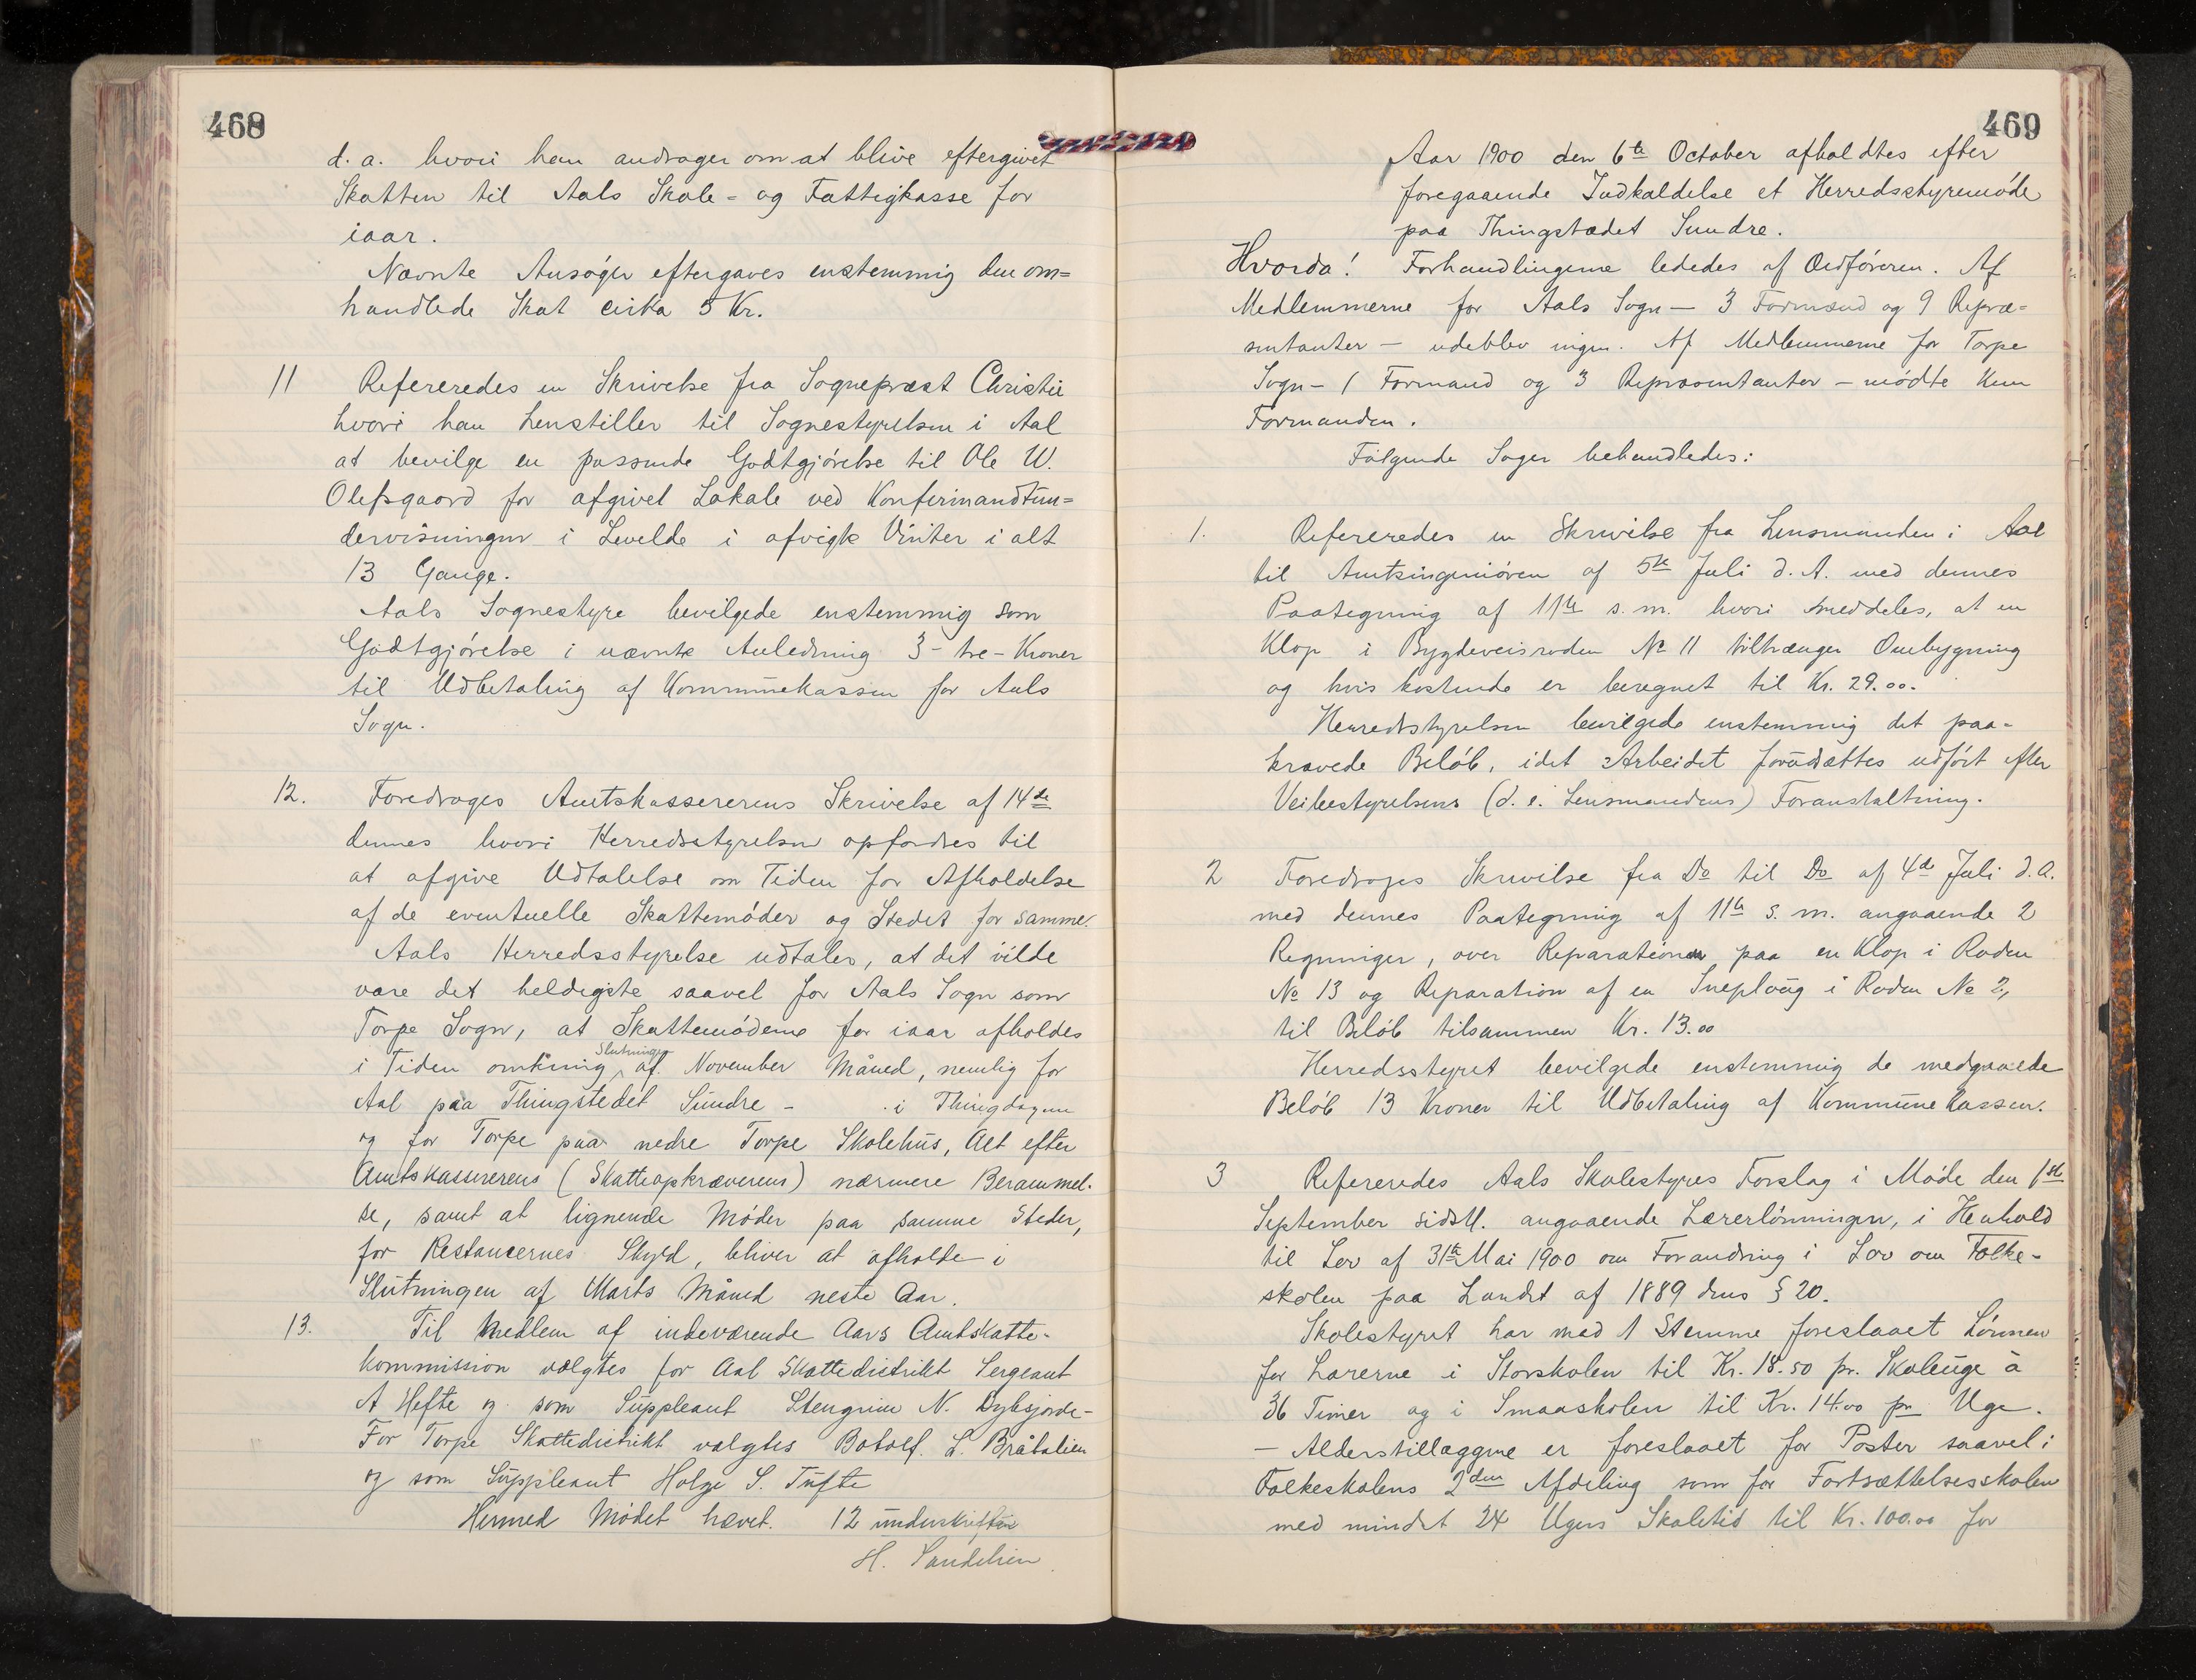 468
d. a. hvori han andrager om at blive eftergivet
Skatten til Aals Skole- og Fattigkasse for
iaar.
Nævnte Ansøger eftergaves enstemmig den om=
handlede Skat cirka 5 Kr.
11 Refereredes en Skrivelse fra Sogneprest Christie
hvori han henstiller til Sognestyrelsen i Aal
at bevilge en passende Godtgjørelse til Ole W.
Olefsgaard for afgivet Lokale ved Konfirmandtun=
dervisningen i Levelde i afvigte Vinter i alt
13 Gange.
Aals Sognestyre bevilgede enstemmig som
Godtgjørelse i nævnte Anledning 3 - tre - Kroner
til Udbetaling af Kommunekassen for Aals
Sogn.
12. Foredroges Amtskassererens Skrivelse af 14de
dennes hvori Herredsstyrelsen opfordres til
at afgive Udtalelse om Tiden for Afholdelse
af de eventuelle Skattemøder og Stedet for samme.
Aals Herredsstyrelse udtaler, at det vilde
være det heldigste saavel for Aals Sogn som
Torpe Sogn, at Skattemøderne for iaar afholdes
i Tiden omkring Slutningen af November Måned, nemlig for
Aal paa Thingstedet Sundre - i Thingdagene
og for Torpe paa nedre Torpe Skolehus, Alt efter
Amtskassererens (Skatteopkræverens) nærmere Berammel-
se, samt at lignende Møder paa samme Steder,
for Restancernes Skyld, bliver at afholde i
Slutningen af Marts Måned neste Aar.
13. Til Medlem af indeværende Aars Amtskatte-
kommission valgtes for Aal Skattedistrikt Sergeant
A Hefte og som Suppleant Stengrim N. Dybsjorde-
For Torpe Skattedistrikt valgtes Botolf. L. Bråtalien
og som Suppleant Holge S. Tufte
Hermed Mødet hævet. 12 underskrifter
H. Sandelien.
469
Aar 1900 den 6te October afholdtes efter
foregaaende Indkaldelse et Herredsstyremøde
paa Thingstædet Sundre.
Hvorda! Forhandlingerne lededes af Ordføreren. Af
Medlemmerne for Aals Sogn — 3 Formænd og 9 Repræ=
sentanter — udeblev ingen. Af Medlemmerne for Torpe
Sogn - 1 Formand og 3 Repræsentanter - mødte kun
Formanden.
Følgende Sager behandledes:
1. Refereredes en Skrivelse fra Lensmanden i Aal
til Amtsingeniøren af 5te Juli d. A. med dennes
Paategning af 11te s. m. hvori meddeles, at en
Klop i Bygdeveisroden No 11 tiltrænger Ombygning
og hvis kostende er beregnet til Kr. 29.00.
Herredsstyrelsen bevilgede enstemmig det paa-
krævede Beløb, idet Arbeidet forudsættes udført efter
Veibestyrelsens (d. e. Lensmandens) Foranstaltning.
2 Foredroges Skrivelse fra Do til Do af 4de Juli d. a.
med dennes Paategning af 11te s. m. angaaende 2
Regninger, over Reparationen paa en Klop i Roden
No 13 og Reparation af en Sneploug i Roden No 2,
til Beløb tilsammen Kr. 13.00
Herredsstyret bevilgede enstemmig de medgaaede
Beløb 13 Kroner til Udbetaling af Kommunekassen.
3 Refereredes Aals Skolestyres Forslag i Møde den 1ste
September sidstl. angaaende Lærerlønningen, i Henhold
til Lov af 31te Mai 1900 om Forandring i Lov om Folke-
skolen paa Landet af 1889 dens § 20.
Skolestyret har med 1 Stemme foreslaaet Lønnen
for Lærerne i Storskolen til Kr. 18.50 pr. Skoleuge à
36 Timer og i Smaaskolen til Kr. 14.00 pr Uge.
— Alderstillæggene er foreslaaet for Poster saavel i
Folkeskolens 2den Afdeling som for Fortsættelsesskolen
med mindst 24 Ugers Skoletid til Kr. 100.00 for